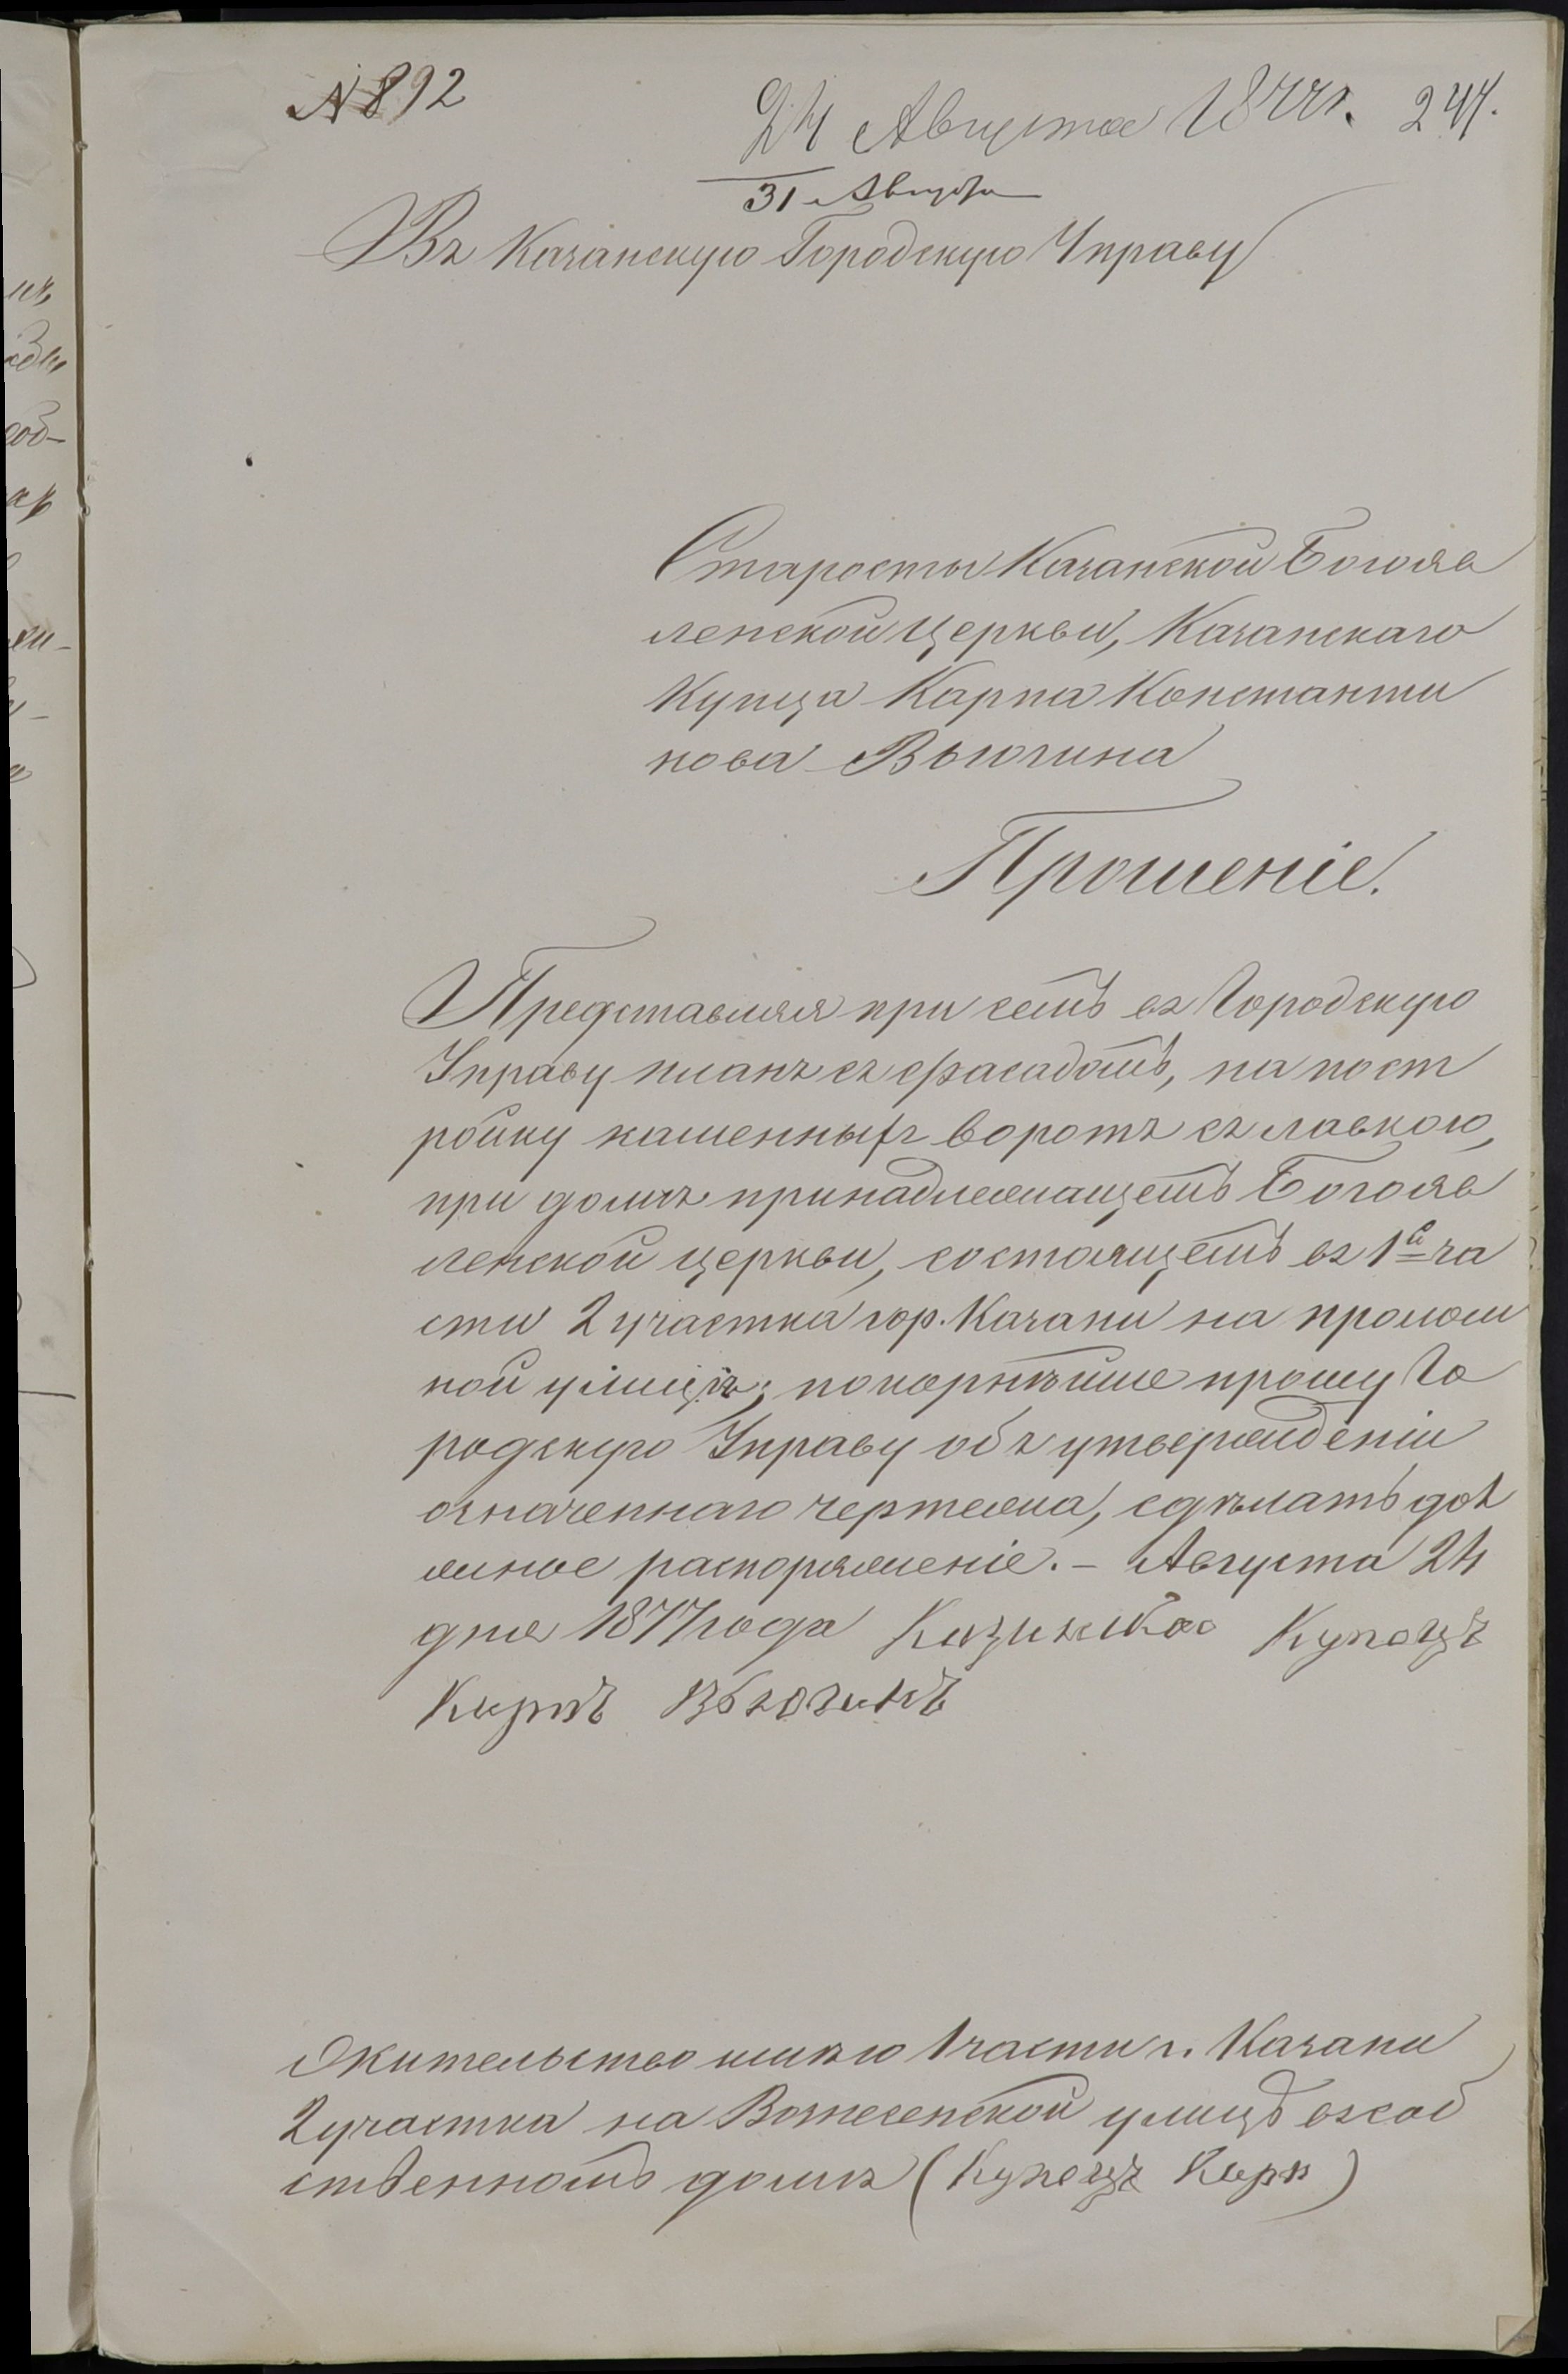 № 892
24 Августа 1877 г. 244.
31 Августа
Въ Казанскую Городскую Управу
Старосты Казанской Богояв
ленской церкви, Казанскаго
Купца Карпа Константи
нова Вьюгина
Прошеніе.
Представляя при семъ въ Городскую
Управу планъ съ фасадомъ, на пост
ройку каменныхъ воротъ съ лавкою,
при домѣ принадлежащемъ Богояв
ленской церкви, состоящемъ въ 1й ча
сти 2 участка гор. Казани на пролом
ной улицѣ; покорнѣйше прошу Го
родскую Управу объ утвержденіи
означеннаго чертежа, сдѣлать дол
жное распоряженіе. - Августа 24
дня 1877 года Казанской Купецъ
Карпъ Вьюгинъ
Жительство имѣю 1 части г. Казани
2 участка на Вознесенской улицѣ въ соб
ственномъ домѣ (Купецъ Карп)